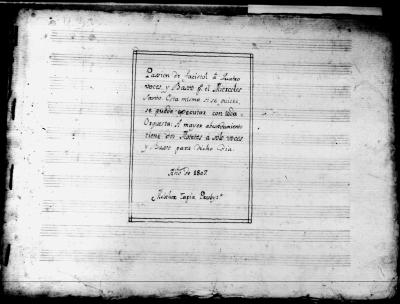 Passion de facistol à Quatro
voces, y Baxo pª el Miercoles
Santo. Esta misma si se quiere,
se puede executar con toda
Orquesta: A mayor abundamiento
tiene dos Motetes a solo voces
y Baxo para dicho Dia.
Año de 1807
Tapia Presbyº